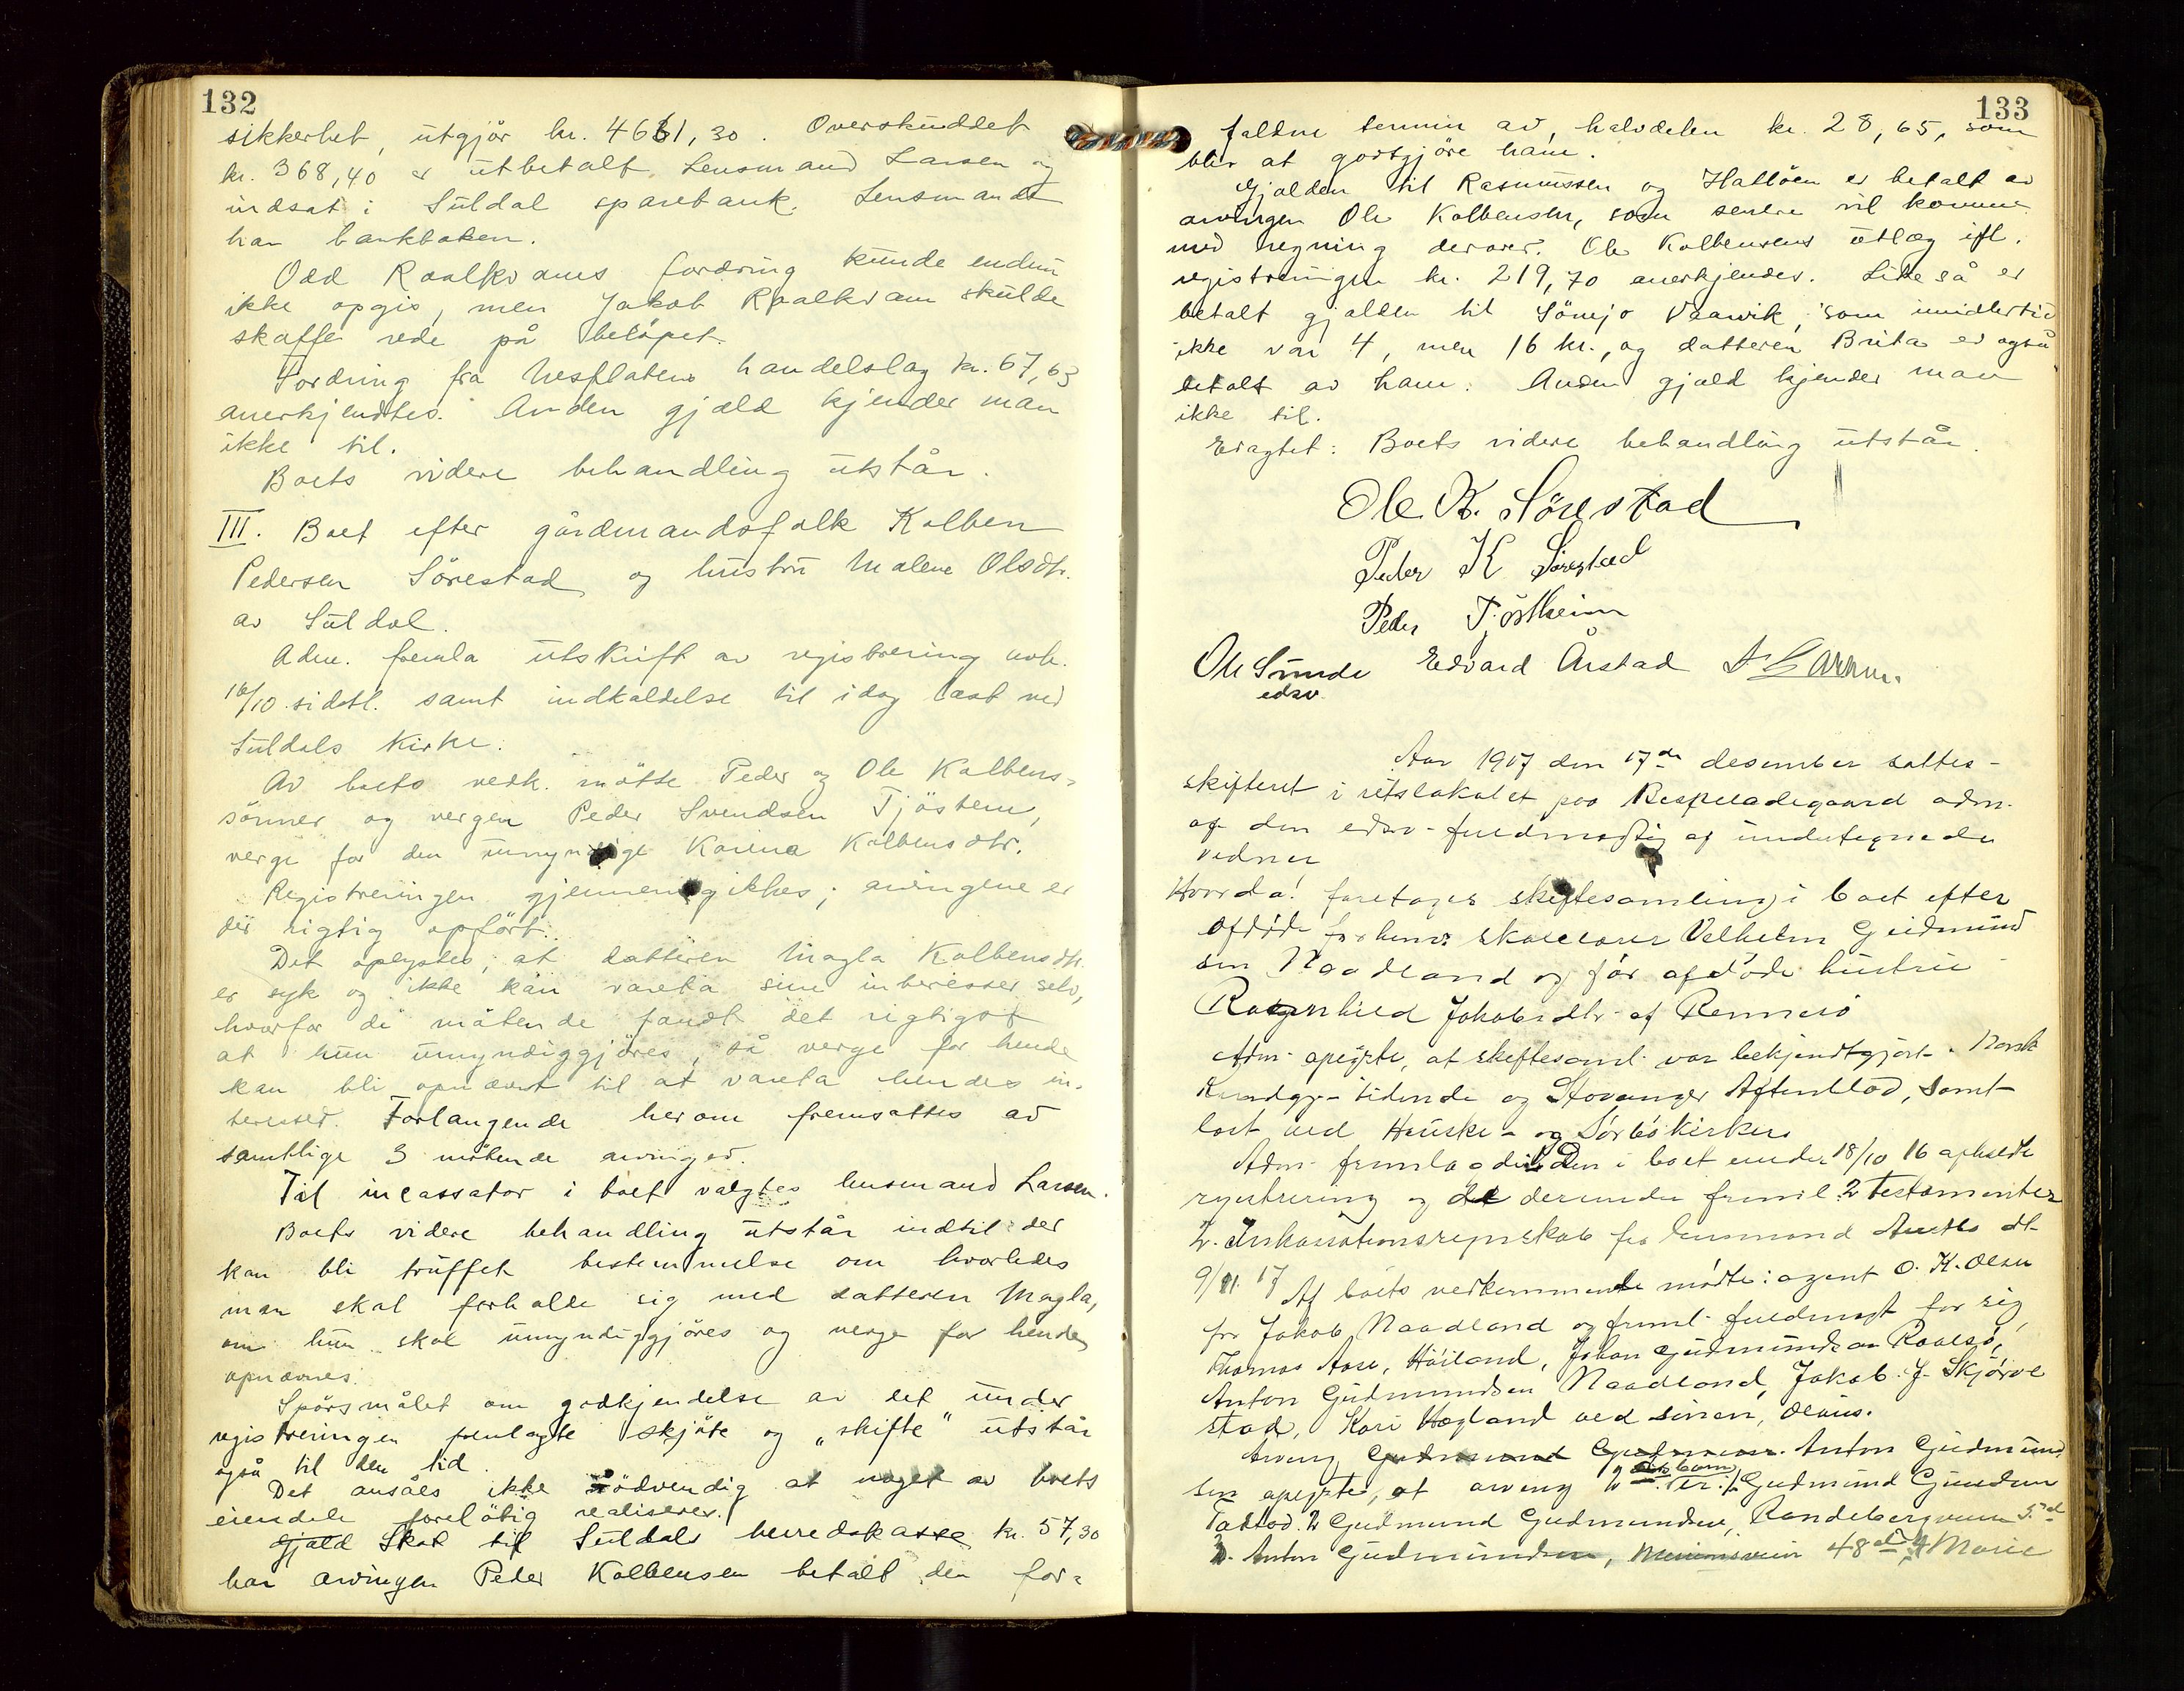 132
sikkerhet, utgjör kr. 4661,30. Overskuddet
kr. 368,40 er utbetalt Lensmand Larsen og
indsat i Suldal sparebank. Lensmandt
har bankboken.
Odd Roalkvams fordring kunde endnu
ikke opgis, men Jakob Roalkvam skulde
skaffe rede på belöpet.
Fordring fra Nesflatens handelslag kr. 67,63
anerkjendtes. Anden gjæld kjender man
ikke til.
Boets videre behandling utstår.
III. Boet efter gårdmandsfolk Kolben
Pedersen Sörestad og hustru Malene Olsdtr.
av Suldal.
Adm. fremla utskrift av registrering avh.
16/10 sidstl. samt indkaldelse til idag læst ved
Suldals kirke.
Av boets vedk. mötte Peder og Ole Kolbens-
sönner og vergen Peder Svendsen Tjöstem,
verge for den umyndige Karina Kolbensdtr.
Registreringen gjennemgikkes; arvingene er
der rigtig opfört.
Det oplystes, at datteren Magla Kolbensdtr.
er syk og ikke kan vareta sine interesser selv,
hvorfor de mötende fandt det rigtigst
at hun umyndiggjöres, så verge for hende
kan bli opnævnt til at vareta hendes in-
teresser. Forlangende herom fremsattes av
samtlige 3 mötende arvinger.
Til incassator i boet valgtes lensmand Larsen.
Boets videre behandling utstår indtil der
kan bli truffet bestemmelse om hvorledes
man skal forholde sig med datteren Magla,
om hun skal umyndiggjöres og verge for hende
opnævnes.
Spörsmålet om godkjendelse av det under
registreringen fremlagte skjöte og „skifte“ utstår
også til den tid.
Det ansåes ikke nödvendig at noget av boets
eiendele forelöbig realiseres.
Gjæld Skat til Suldals herredskasse kr. 57,30
har arvingen Peder Kolbensen betalt den for-
133
faldne termin av, halvdelen kr. 28,65, som
blir at godtgjöre ham.
Gjælden til Rasmussen og Hatlöen er betalt av
arvingen Ole Kolbensen, som senere vil komme
med regning derover. Ole Kolbensens utlæg ifl.
registreringen kr. 219,70 anerkjendes. Likeså er
betalt gjælden til Sönejo Vaarvik, som imidlertid
ikke var 4, men 16 kr., og datteren Brita er også
betalt av ham. Anden gjæld kjender man
ikke til.
Eragtet: Boets videre behandling utstår.
Ole K. Sörestad
Peder K Sörestad
Peder T. östheim
Ole Sunde Edvard Årstad Larsen.
edsv.
Aar 1917 den 17de desember sattes
skifteret i retslokalet paa Bispeladegaard adm.
af den edsv. fuldmægtig af undertegnede
vidner
Hvorda! foretages skiftesamling i boet efter
afdöde forhenv. skolelærer Velhelm Gudmund
sen Naadland og för afdöde hustru
Ragnhild Jakobsdtr. af Rennesö
Adm. oplyste, at skiftesaml. var bekjendtgjort i Norsk
Kundgj. tidende og Stavanger Aftenblad, samt
læst ved Hauske- og Sörbö kirker
Adm. fremla den i boet under 18/10 16 afholdt
registrering og de derunder freml. 2 testamenter
2. Inkassationsregnskab fra lensmand dt.
9/11 17 Af boets vedkommende mödte: agent O. K. Olsen
for Jakob Naadland og freml. fuldmagt for sig
Thomas Aase, Höiland, Johan Gudmundsen Raalsö,
Anton Gudmundsen Naadland, Jakob J. Skjörve
stad, Kari Hagland ved sönnen, Olaus.
Arving Gudmund Gudmun. Anton Gudmund
sen oplyste, at arving Gudmund Gundun
Tastad. 2 Gudmund Gudmundsen, Randebergveien 5
3. Anton Gudmundsen, 48 4 Marie